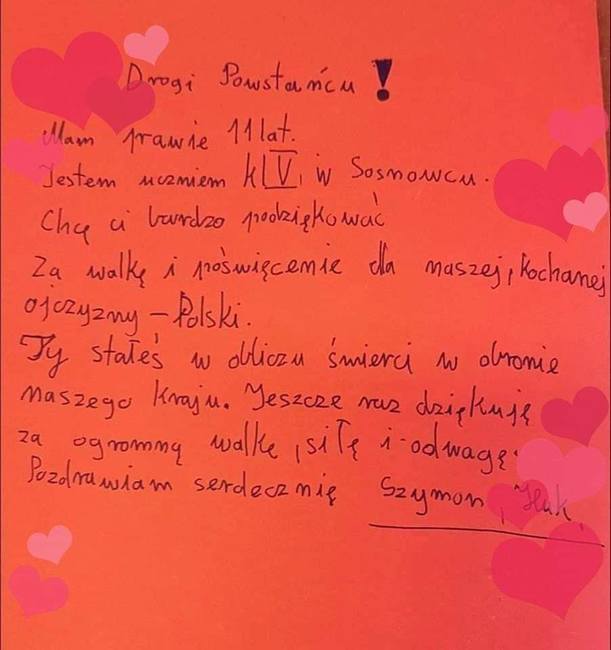 Drogi Powstańcu!
Mam prawie 11 lat.
Jestem uczniem kl V, w Sosnowcu.
Chcę ci bardzo podziękować
Za walkę i poświęcenie dla naszej, kochanej
ojczyzny - Polski.
Ty stałeś w obliczu śmierci w obronie
naszego kraju. Jeszcze raz dziękuję
za ogromną walkę, siłę i odwagę.
Pozdrawiam serdecznię Szymon,